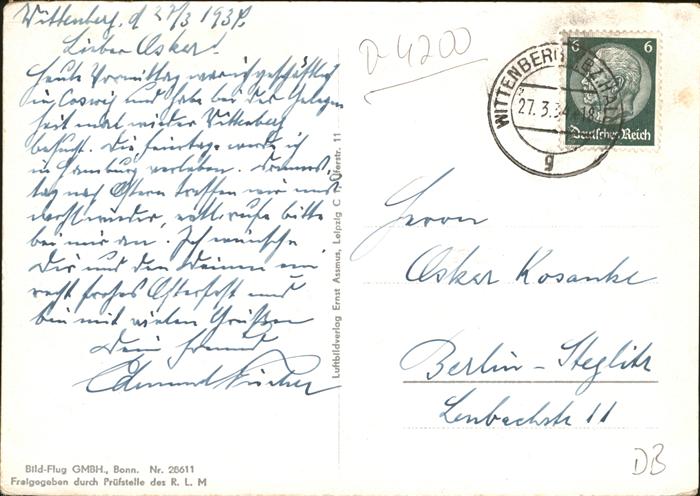 Wittenberg, d 27/3 1934.
Lieber Oskar!
Heute Vormittag war ich geschäftlich
in Coswig und habe bei der Gelegen
heit mal wieder Wittenberg
besucht. Die Feiertage werde ich
in Hamburg verleben. Donners
tag nach Ostern treffen wir uns
wohl wieder, evtl. rufe bitte
bei mir an. Ich wünsche
Dir und den Deinen ein
recht frohes Osterfest und
bin mit vielen Grüßen
Dein Freund
Edmund
Bild-Flug GMBH., Bonn. Nr. 28611
Freigegeben durch Prüfstelle des R. L. M
Luftbildverlag Ernst Assmus, Leipzig C 1, 11
4200
WITTENBERG (BZ. HALLE)
27. 3. 34
g
6 6
Deutsches Reich
Herrn
Oskar Kosanke
Berlin-Steglitz
Lenbachstr 11
DB